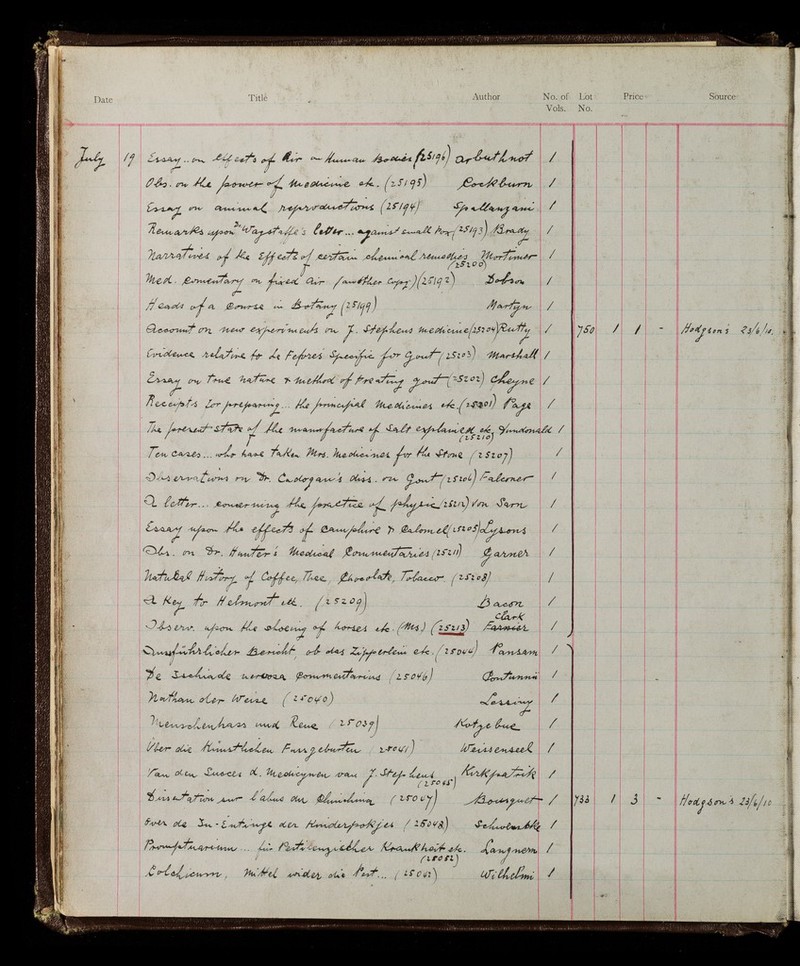 Date Title Author No. of Vols. Lot No. Price Source
July 19 Essay.. on effects of Air on Human Bodies (25196) Arbuthnot 1
Obs. on the power of Medicine etc. (25195) Cockburn 1
Essay on animal reproductions (25194) Spallanzani 1
Remarks upon Dr Wagstaffe's letter... against small Pox (25193) Brady 1
Narratives of the Effects of certain chemical remedies (25200) Mortimer 1
Med. Comentary on fixed Air (another Copy) (25192) Dobson 1
Heads of a Course in Botany (25199) Martyn 1
Account on new experiments on J. Stephens medicine (25204) Rutty 1 750 1 1 - Hodgson's 23/6/10.
Evidence relative to de Fefvres Specific for Gout (25203) Marshall 1
Essay on true nature & method of treating gout (25202) Cheyne 1
Receipts for preparing... the principal medicines etc. (25201) Page 1
The present state of the manufacture of Salt explained etc. (25210) 1
Ten Cases... who have taken Mrs. medicines for the Stone (25207) 1
Observations on Dr. Cadogan's diss. on Gout (25206) Falconer 1
A letter... concerning the practice of physic (25212) Von Sarn 1
Essay upon the effects of Camphire & Calomel (25205) Lysons 1
Obs. on Dr. Hunter's Medical Commentaries (25211) Garner 1
Natural History of Coffee, Thee, Chocolate, Tobacco (25208) 1
A Key to Helmont etc. (25209) Bacon 1
Observ. upon the shoeing of horses etc. (Ms.) (25213) Clark 1
Ausführlicher Bericht, ob das Zipperlein etc. (25044) Pansam 1
De Ischiade nervosa Commentarius (25046) Cotunnii 1
Nathan der Weise (25040) Lessing 1
Menschenhass und Reue (25039) Kotzebue 1
Über die Künstlichen Fussgeburten (25041) Weissenseel 1
Van den Succes d. Medicynen van J. Stephens (25045) Kirkpatrik 1
Dissertation sur l'abus du Quinquina (25047) 1 733 1 3 - Hodgson's 23/6/10
Over de In-Entinge der Kinderpokjes (25048) Schwencke 1
Promptuarium... für Pestilenzischer Krankheit etc. (25052) Langnern 1
Colchicum, Mittel wider die Pest... (25042) Wilhelmi 1